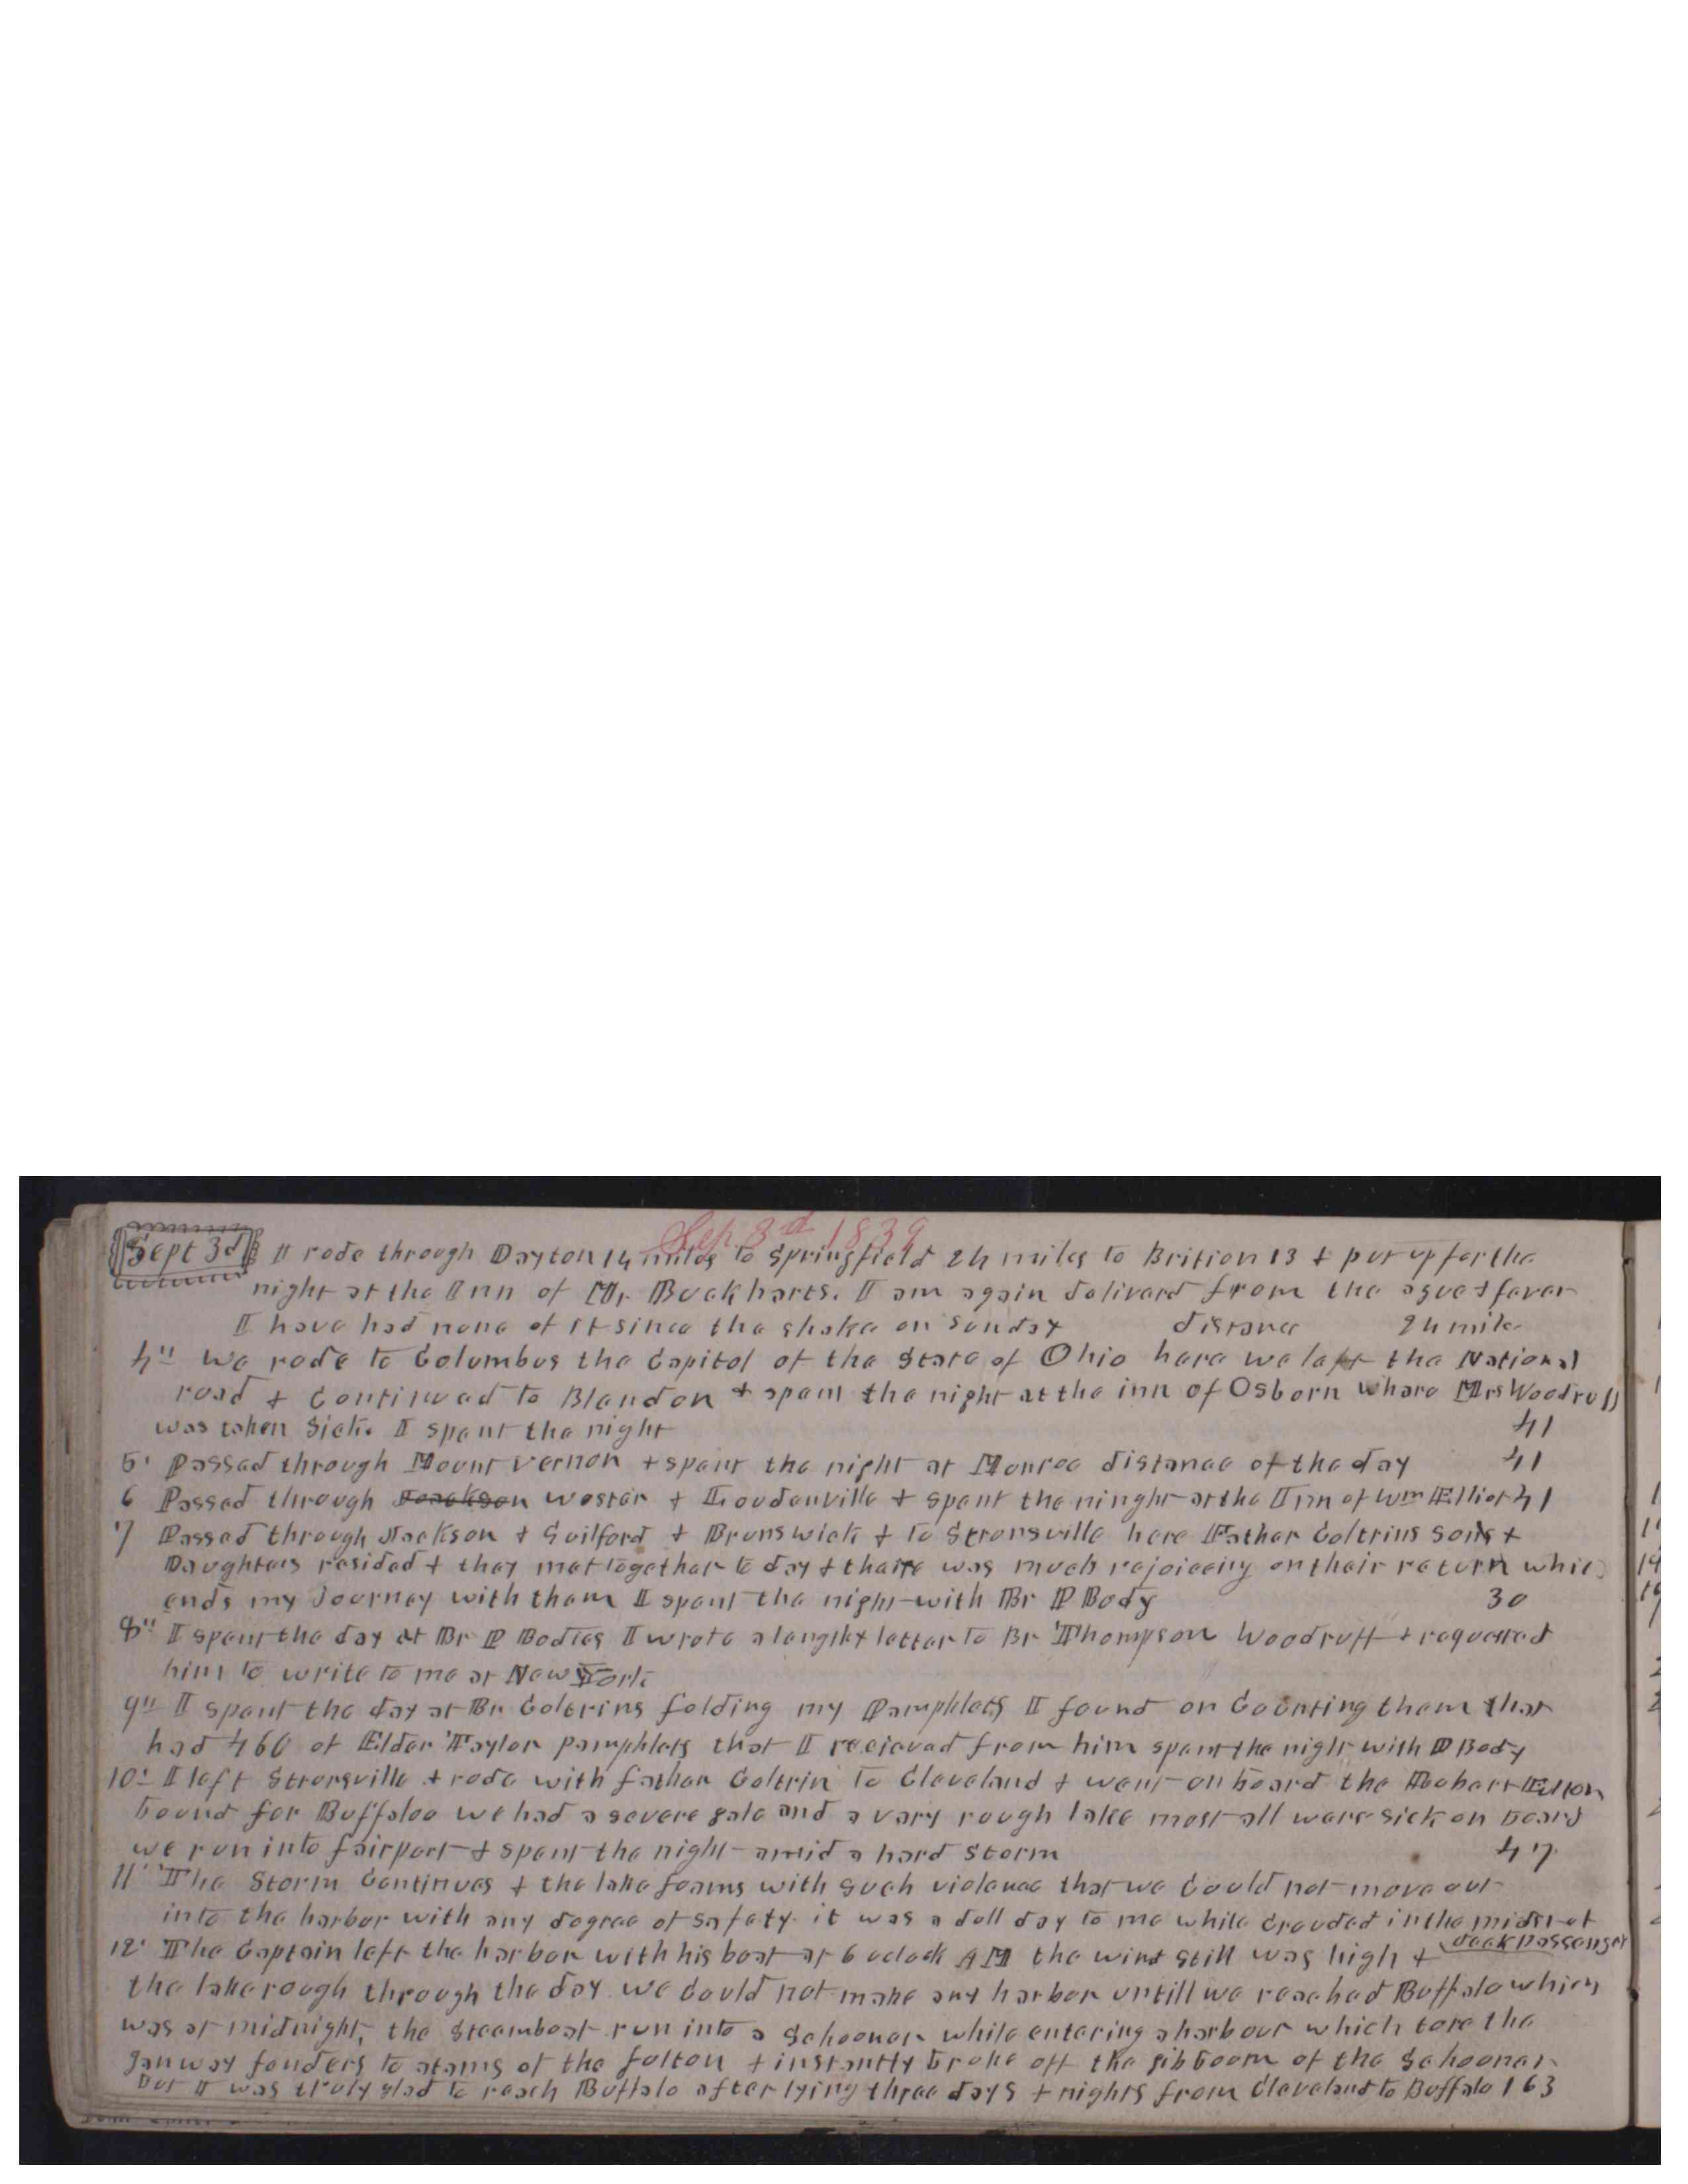 Sep 3d 1839
Sept 3d I rode through Dayton 14 miles to Springfield 24 miles to Brition 13 & put up for the
night at the Inn of Mr Buckharts. I am again delivard from the ague & fever
I have had none of it since the shake on Sunday distance 24 mile
4" We rode to Columbus the Capitol of the State of Ohio here we left the National
road & Continued to Blendon & spent the night at the inn of Osborn whare Mrs Woodruff
was taken Sick. I spent the night 41
5' Passed through Mount Vernon & spent the night at Monroe distance of the day 41
6 Passed through Jeackson Woster & Loudenville & spent the ninght at the Inn of Wm Elliot 41
7 Passed through Jackson & Guilford & Brunswick & to Stronsville here Father Coltrins Sons &
Daughters resided & they met together to day & thaire was much rejoiceing on their return whic
ends my Journey with them I spent the night with Br P Body 30
8" I spent the day at Br P Bodies I wrote a lengthy letter to Br Thompson Woodruff & requested
him to write to me at New York
9" I spent the day at Br Coltrins folding my Pamphlets I found on Counting them that
had 460 of Elder Taylor pamphlets that I recieved from him spent the night with P Body
10' I left Stronsville & rode with father Coltrin to Cleveland & went on board the Robert Fulton
bound for Buffaloo we had a severe gale and a vary rough lake most all were sick on board
we run into fairport & spent the night amid a hard Storm 47
11' The Storm Continues & the lake foams with such violence that we Could not move out
into the harbor with any degree of safety. it was a dull day to me while Crouded in the midst of
deck passenger
12' The Captain left the harbor with his boat at 6 oclock AM the wind still was high &
the lake rough through the day we Could not make any harbor untill we reached Buffalo which
was at midnight, the Steamboat run into a Schooner while entering a harbour which tore the
ganway fenders to atams of the fulton & instantly broke off the gibboom of the Schooner
but I was truly glad to reach Buffalo after lying three days & nights from Cleveland to Buffalo 163